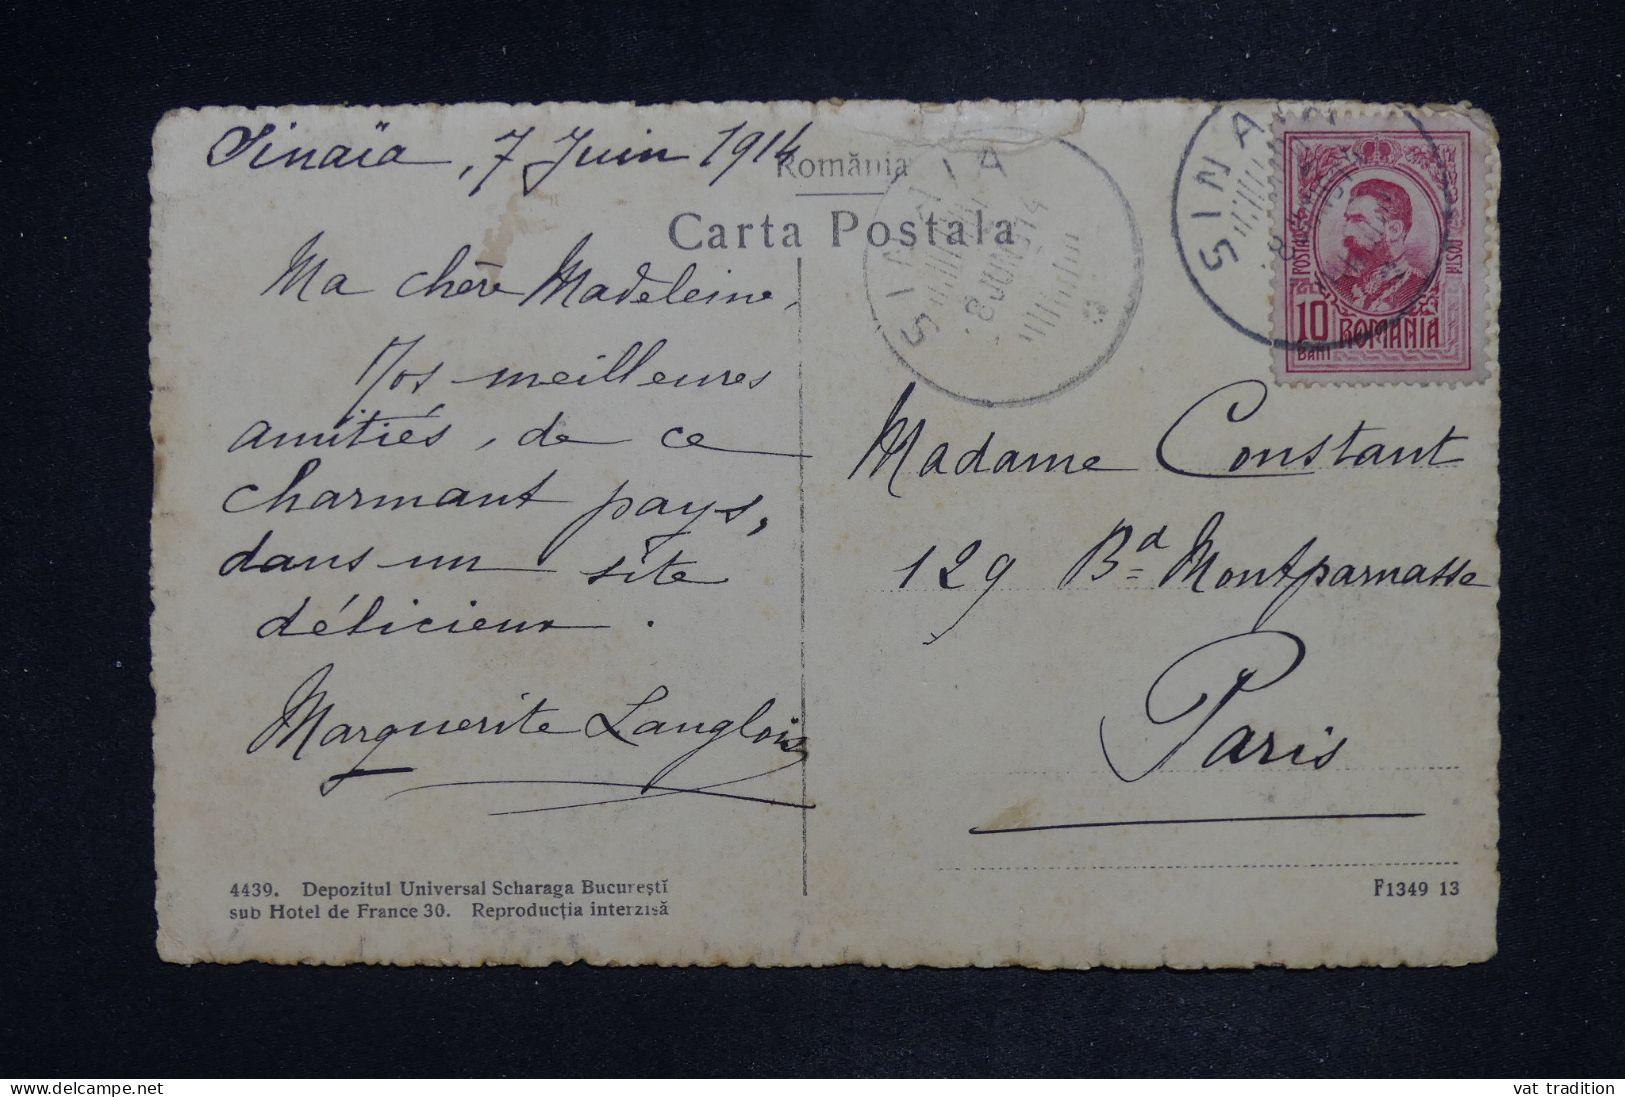 Sinaïa, 7 Juin 1914
România
Carta Postala
Ma chère Madeleine,
Nos meilleures
amitiés, de ce
charmant pays,
dans un site
délicieux.
Marguerite Langlois
4439. Depozitul Universal Scharaga Bucureşti
sub Hotel de France 30. Reproducţia interzisă
SINAIA
8 JUN 914
SINAIA
POSTA
POSTA
10
BANI
ROMANIA
Madame Constant
129 Bd Montparnasse
Paris
F1349 13
vat tradition